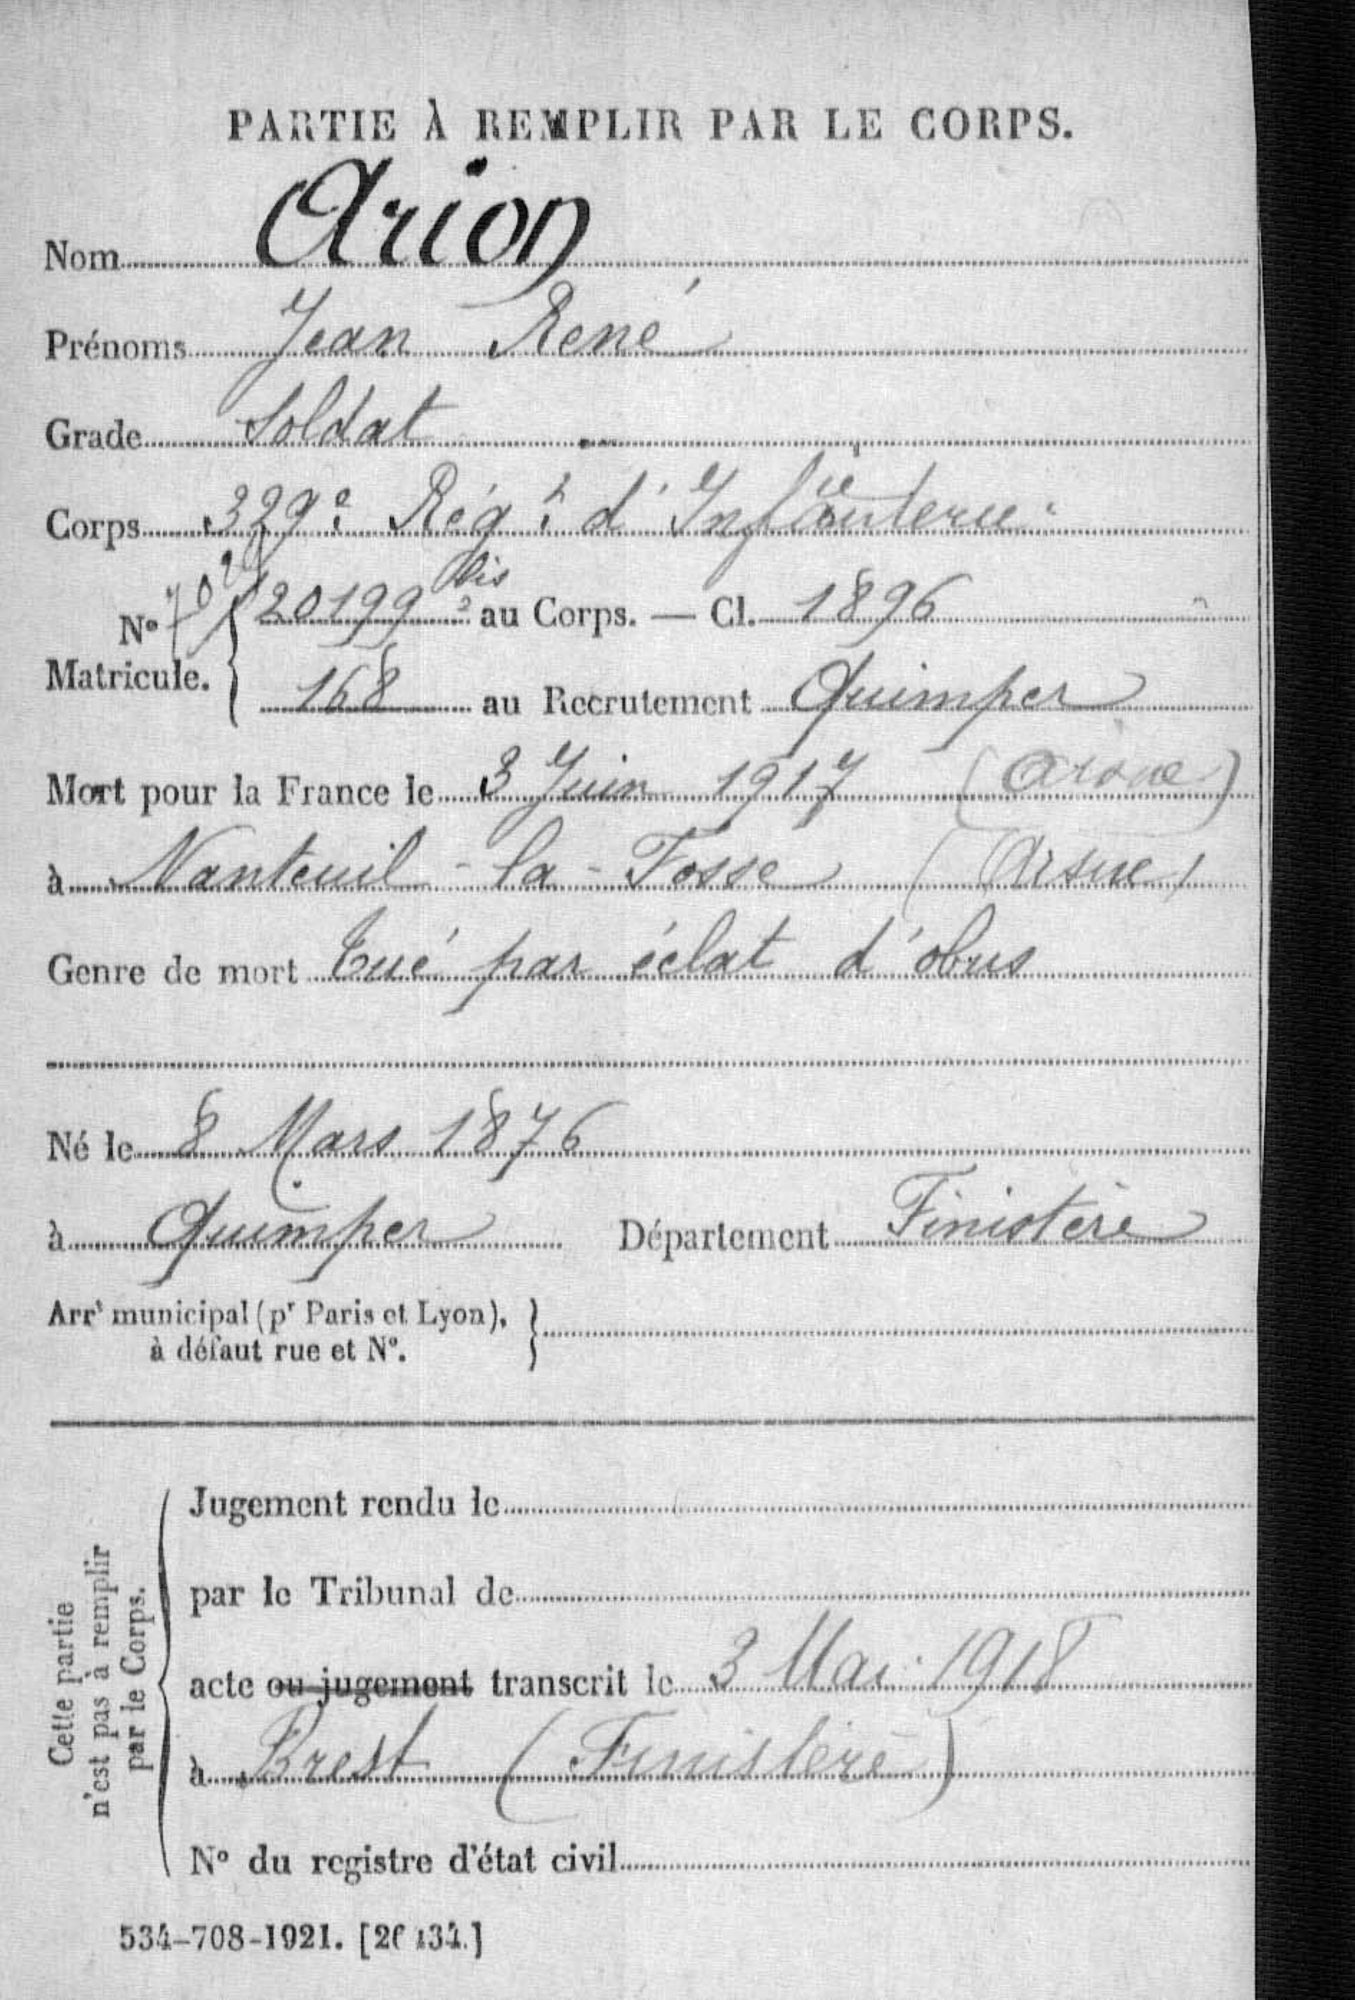 PARTIE À REMPLIR PAR LE CORPS.
Nom Arion
Prénoms Jean René
Grade Soldat
Corps 329e Régt d'Infanterie
No Matricule. 20199 bis au Corps. — Cl. 1896
168 au Recrutement Quimper
Mort pour la France le 3 Juin 1917 (Aisne)
à Nanteuil-la-Fosse (Aisne)
Genre de mort Tué par éclat d'obus
Né le 8 Mars 1876
à Quimper Département Finistère
Arrt municipal (pr Paris et Lyon),
à défaut rue et No.
Cette partie
n'est pas à remplir
par le Corps.
Jugement rendu le
par le Tribunal de
acte ou jugement transcrit le 3 Mai 1918
à Brest (Finistère)
No du registre d'état civil
534-708-1921.